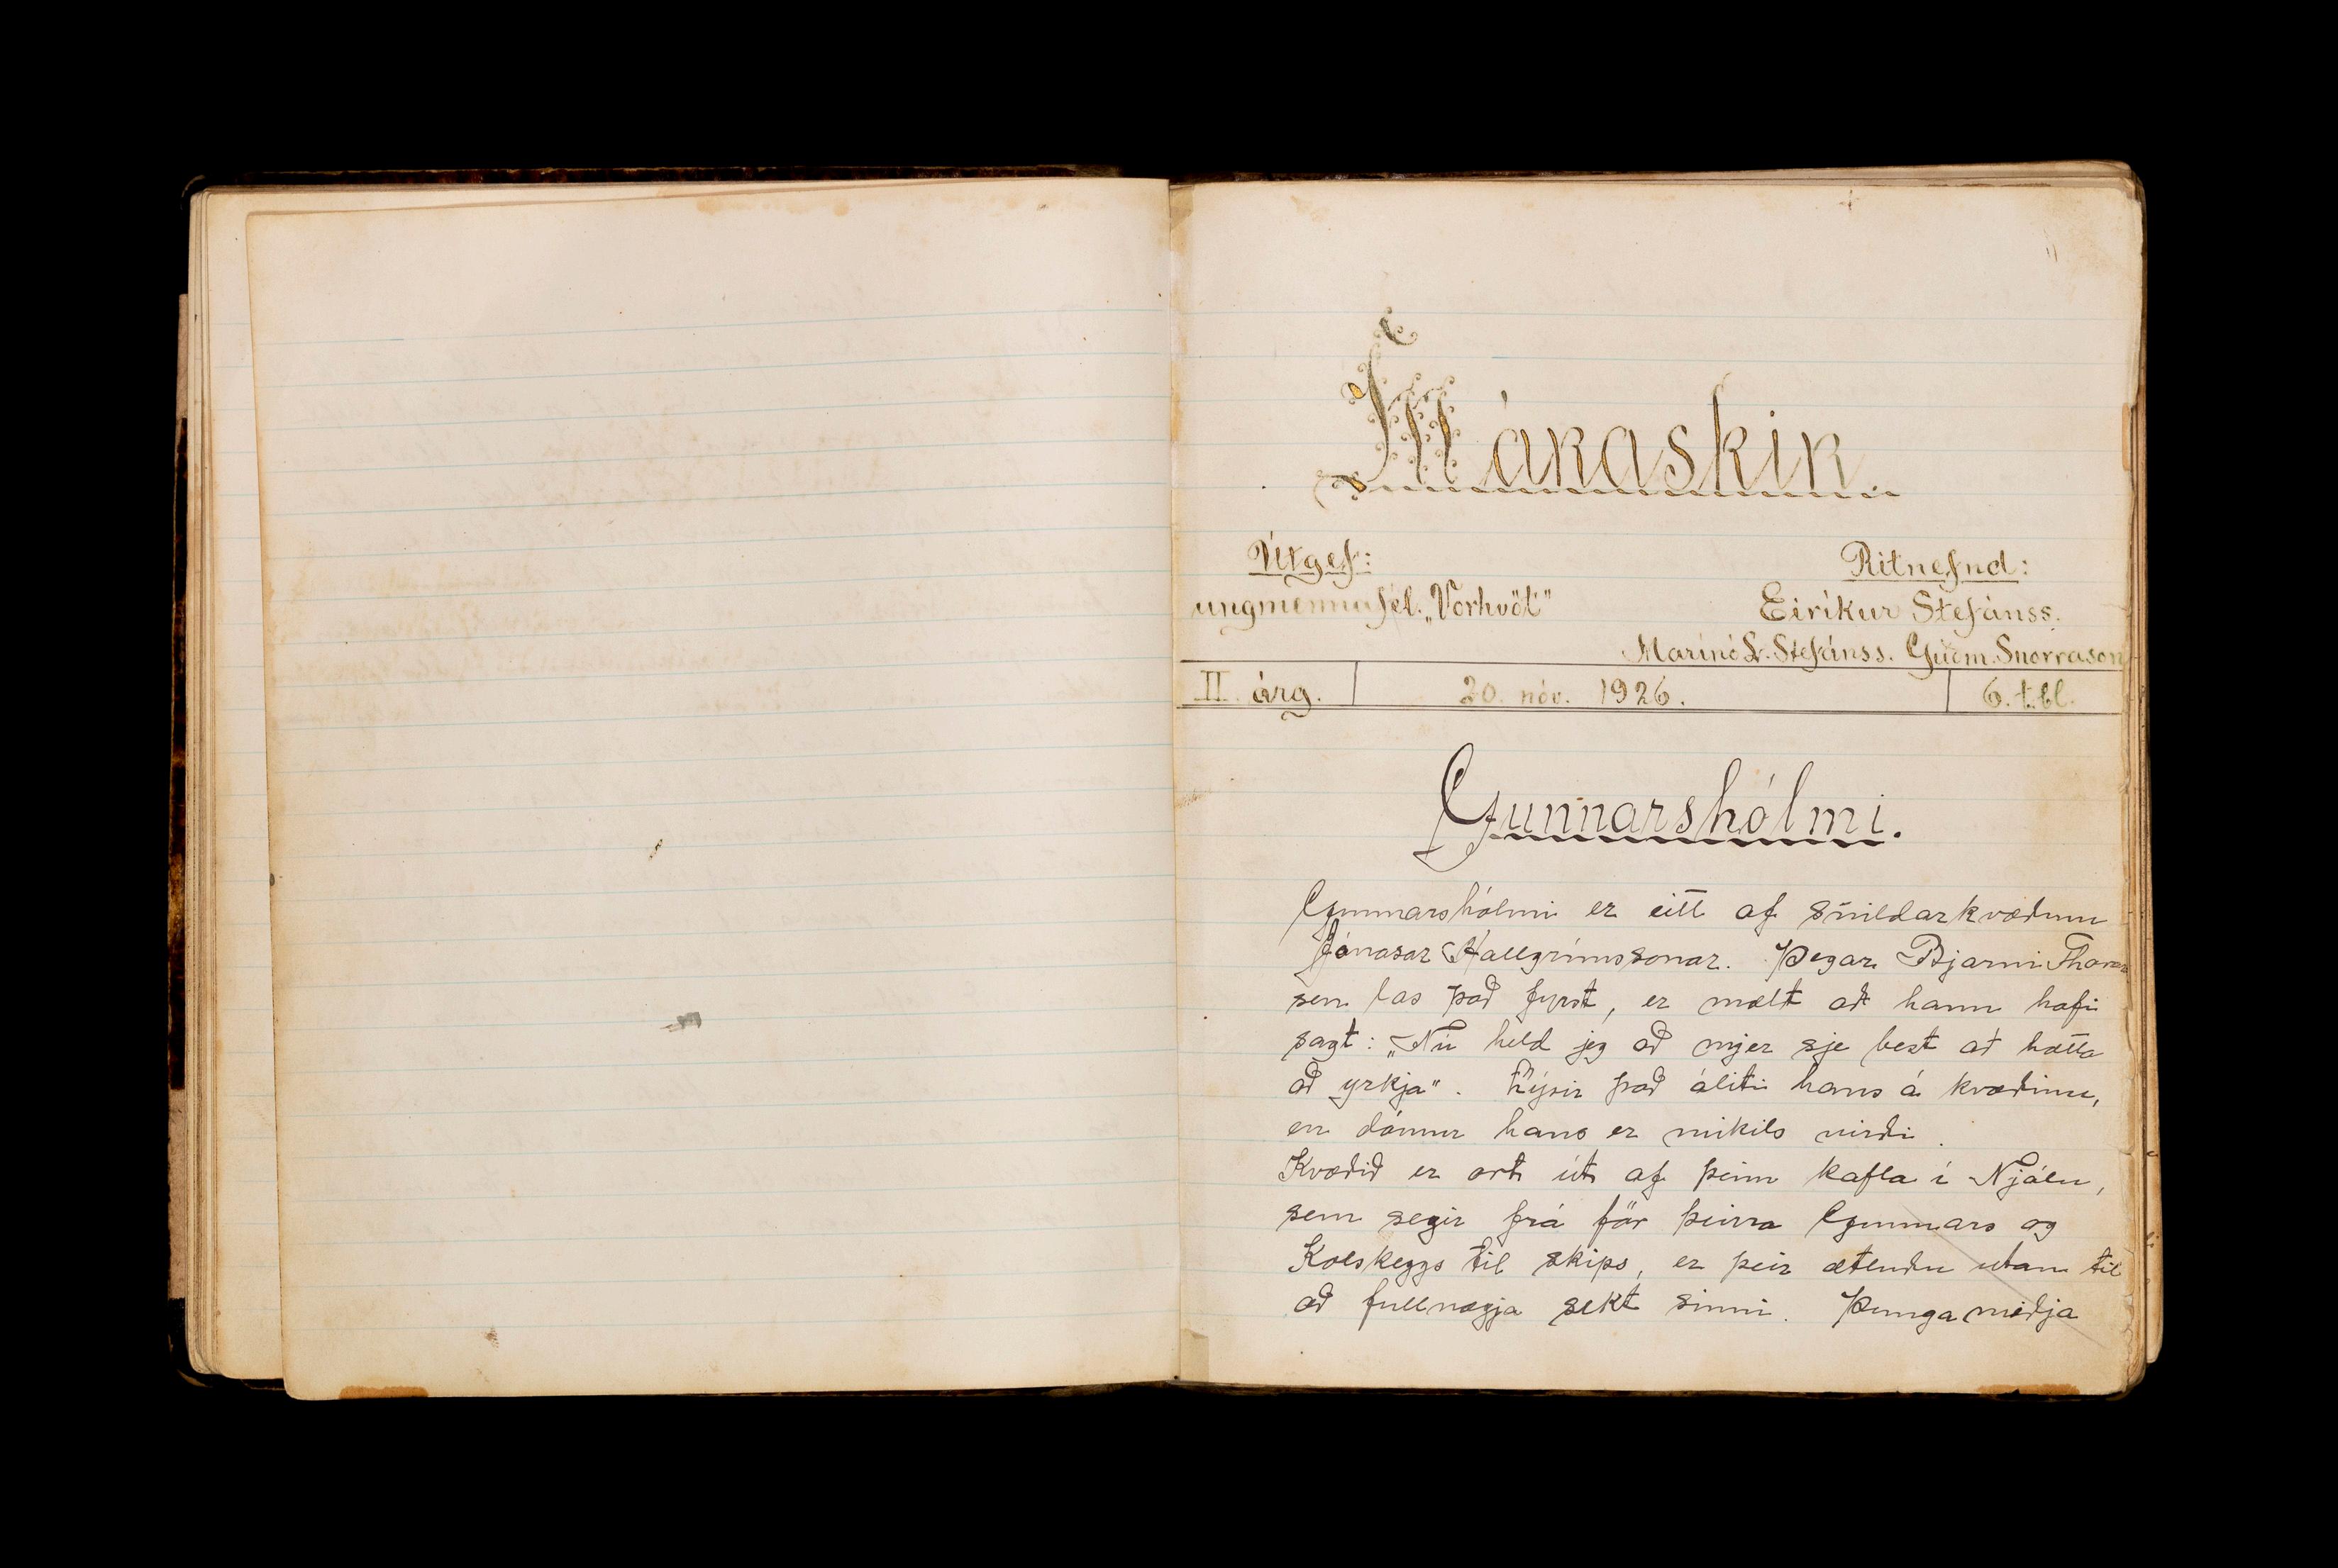 Máraskin
Útgef:
ungmennafél. „Vorhvöt"
Ritnefnd:
Eiríkur Stefánss.
Marinó L. Stefánss. Guðm. Snorrason
II. árg. 20. nóv. 1926. 6. tbl.
Gunnarshólmi.
Gunnarshólmi er eitt af snildarkvæðum
Jónasar Hallgrímssonar. Þegar Bjarni Thoraren
sen las það fyrst, er mælt að hann hafi
sagt: „Nú held jeg að mjer sje best að hætta
að yrkja". Lýsir það áliti hans á kvæðinu,
en dómur hans er mikils virði.
Kvæðið er ort út af þeim kafla í Njálu,
sem segir frá för þeirra Gunnars og
Kolskeggs til skips, er þeir ætluðu utan til
að fullnægja sekt sinni. Þungamiðja